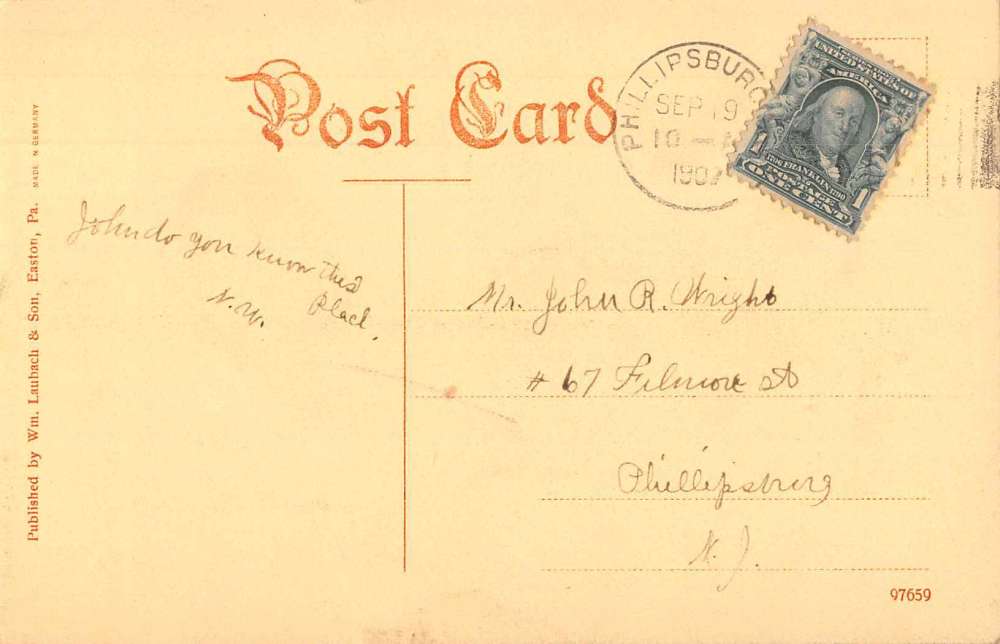 Post Card
PHILLIPSBURG
SEP 19
10 —
1907
UNITED STATES OF
AMERICA
1706 FRANKLIN 1790
POSTAGE
1 ONE CENT 1
John do you know this
Place.
N.W.
Mr. John R. Wright
# 67 Filmore St
Phillipsburg
N. J.
97659
Published by Wm. Laubach & Son, Easton, Pa. MADE IN GERMANY